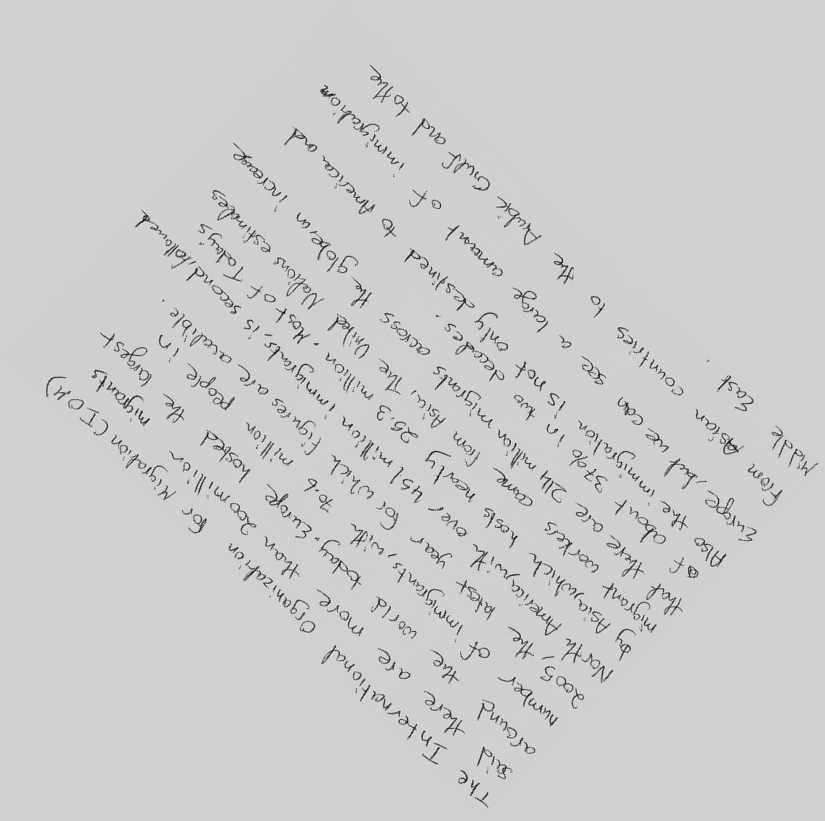 The International Organization for Migration (IOM)
said there are more than 200 million migrants
around the world today. Europe hosted the largest
number of immigrants, with 70.6 million people in
2005, the latest year for which figures are availible.
North America, with over 45.1 million immigrants, is second, followed
by Asia, which hosts nearly 25.3 million. Most of Today's
migrant workers come from Asia. The United Nations estimates
that there are 214 million migrants across the globe, an increase
of about 37% in two decades.
Also the immigration is not only destined to America and
Europe, but we can see a large amount of immigration
from Asian countries to the Arabic Gulf and to the
Middle East.